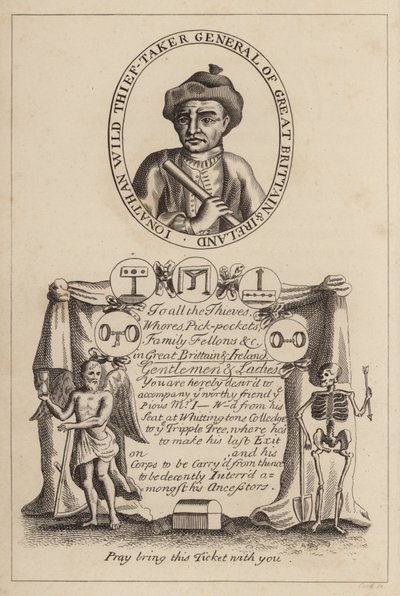 IONATHAN WILD THIEF-TAKER GENERAL OF GREAT BRITTAIN & IRELAND.
To all the Thieves,
Whores, Pick-pockets,
Family Fellons &c,
in Great Brittain & Ireland,
Gentlemen & Ladies
You are hereby desir'd to
accompany yͬ worthy friend yͤ
Pious Mͬ I— W—d from his
Seat at Whittingtons Colledge
to yͤ Tripple Tree, where he's
to make his last Exit
on , and his
Corps to be Carry'd from thence
to be decently Interr'd a=
mongst his Ancestors.
Pray bring this Ticket with you